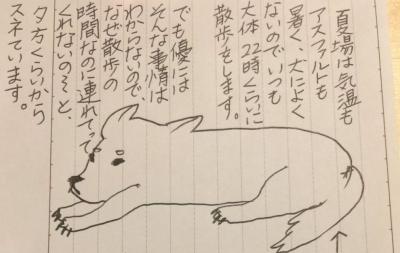 夏場は気温も
アスファルトも
暑く、犬によく
ないのでいつも
大体22時くらいに
散歩をします。
でも優には
そんな事情は
わからないので、
なぜ散歩の
時間なのに連れてって
くれないのぞと、
夕方くらいから
スネています。